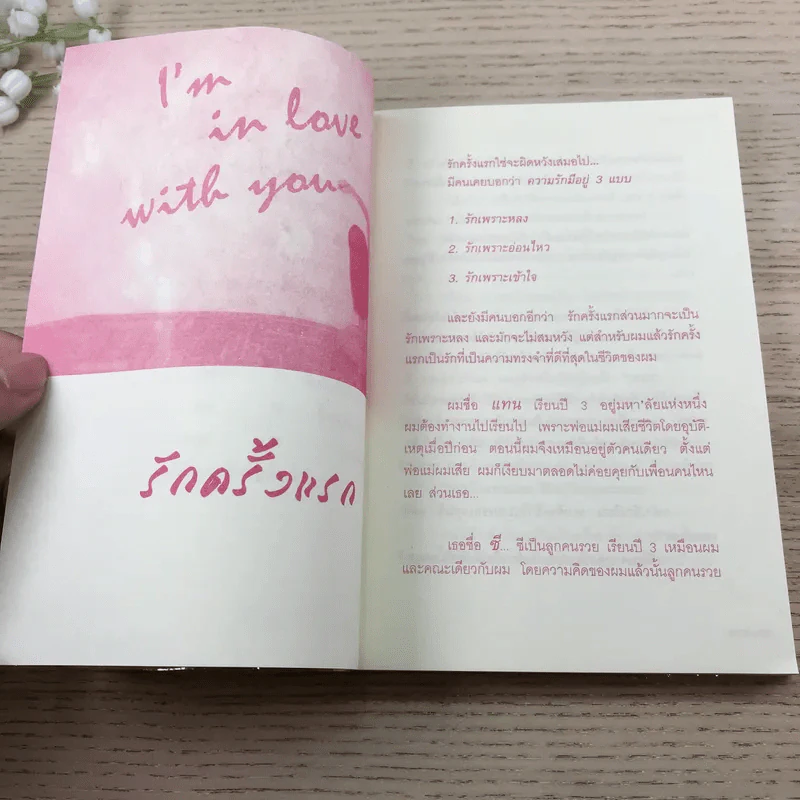 I'm
in love
with you
รักครั้งแรก
รักครั้งแรกใช่จะผิดหวังเสมอไป...
มีคนเคยบอกว่า ความรักมีอยู่ 3 แบบ
1. รักเพราะหลง
2. รักเพราะอ่อนไหว
3. รักเพราะเข้าใจ
และยังมีคนบอกอีกว่า รักครั้งแรกส่วนมากจะเป็น
รักเพราะหลง และมักจะไม่สมหวัง แต่สำหรับผมแล้วรักครั้ง
แรกเป็นรักที่เป็นความทรงจำที่ดีที่สุดในชีวิตของผม
ผมชื่อ แทน เรียนปี 3 อยู่มหา'ลัยแห่งหนึ่ง
ผมต้องทำงานไปเรียนไป เพราะพ่อแม่ผมเสียชีวิตโดยอุบัติ-
เหตุเมื่อปีก่อน ตอนนี้ผมจึงเหมือนอยู่ตัวคนเดียว ตั้งแต่
พ่อแม่ผมเสีย ผมก็เงียบมาตลอดไม่ค่อยคุยกับเพื่อนคนไหน
เลย ส่วนเธอ...
เธอชื่อ ซี... ซีเป็นลูกคนรวย เรียนปี 3 เหมือนผม
และคณะเดียวกับผม โดยความคิดของผมแล้วนั้นลูกคนรวย